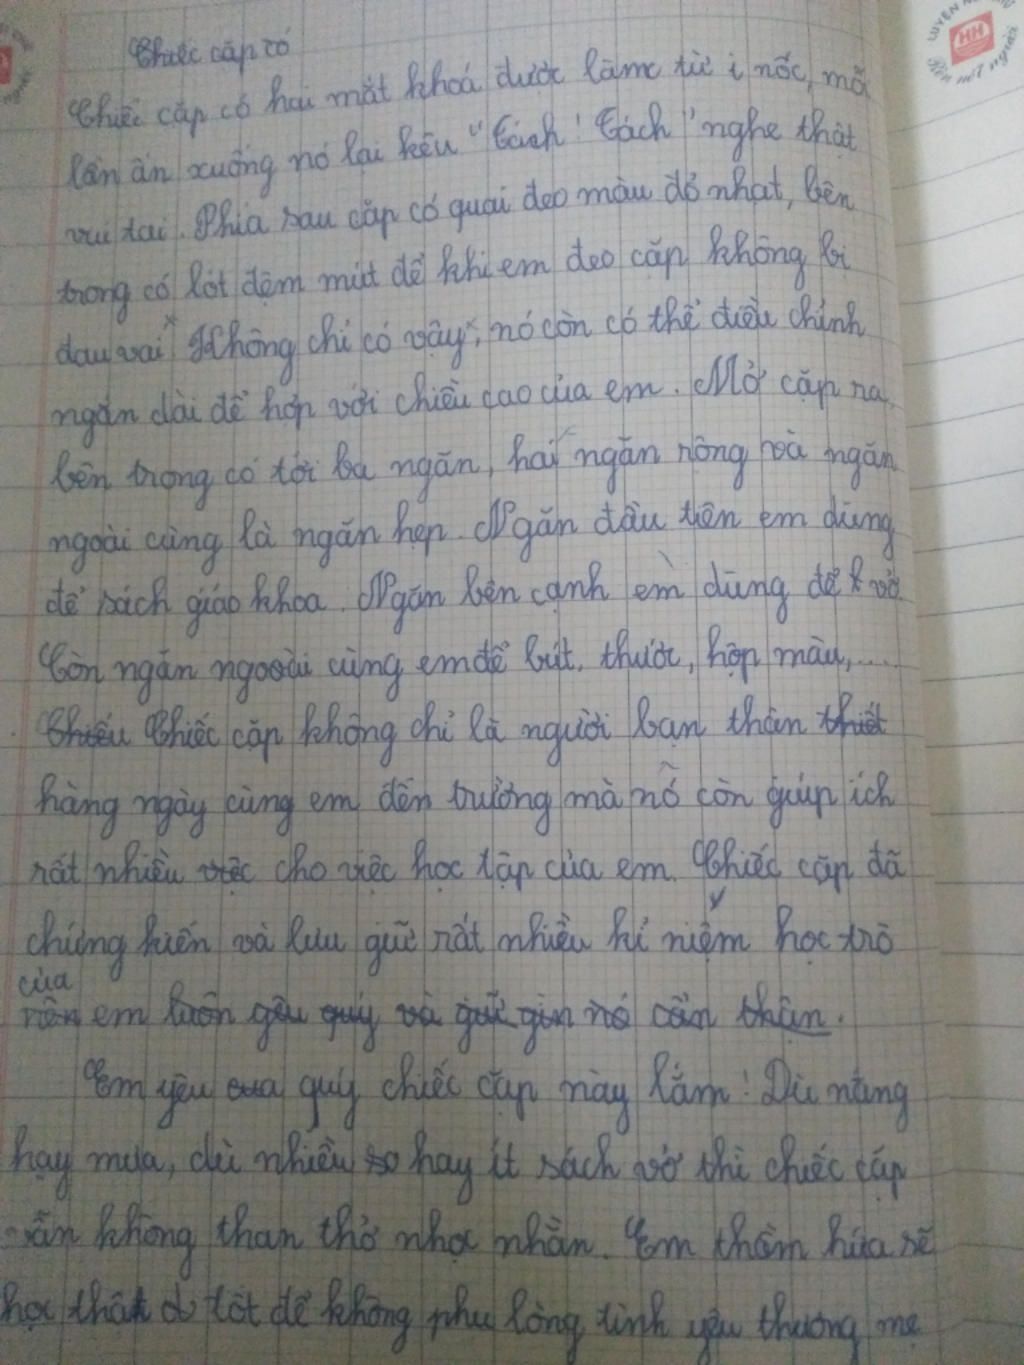 Chiếc cặp có
LUYỆN
HH
nét người
Chiếc cặp có hai mắt khoá được làm từ i nốc, mỗi
lần ấn xuống nó lại kêu "Cách! Cách" nghe thật
vui tai. Phía sau cặp có quai đeo màu đỏ nhạt, bên
trong có lót đệm mút để khi em đeo cặp không bị
đau vai. Không chỉ có vậy, nó còn có thể điều chỉnh
ngắn dài để hợp với chiều cao của em. Mở cặp ra,
bên trong có tới ba ngăn, hai ngăn rộng và ngăn
ngoài cùng là ngăn hẹp. Ngăn đầu tiên em dùng
để sách giáo khoa. Ngăn bên cạnh em dùng để vở.
Còn ngăn ngoài cùng em để bút, thước, hộp màu,.....
Chiếu Chiếc cặp không chỉ là người bạn thân thiết
hàng ngày cùng em đến trường mà nó còn giúp ích
rất nhiều việc cho việc học tập của em. Chiếc cặp đã
chứng kiến và lưu giữ rất nhiều kỉ niệm học trò
của
nên em luôn yêu quý và giữ gìn nó cẩn thận.
Em yêu của quý chiếc cặp này lắm! Dù nắng
hay mưa, dù nhiều so hay ít sách vở thì chiếc cặp
vẫn không than thở nhọc nhằn. Em thầm hứa sẽ
học thật tốt để không phụ lòng tình yêu thương mẹ